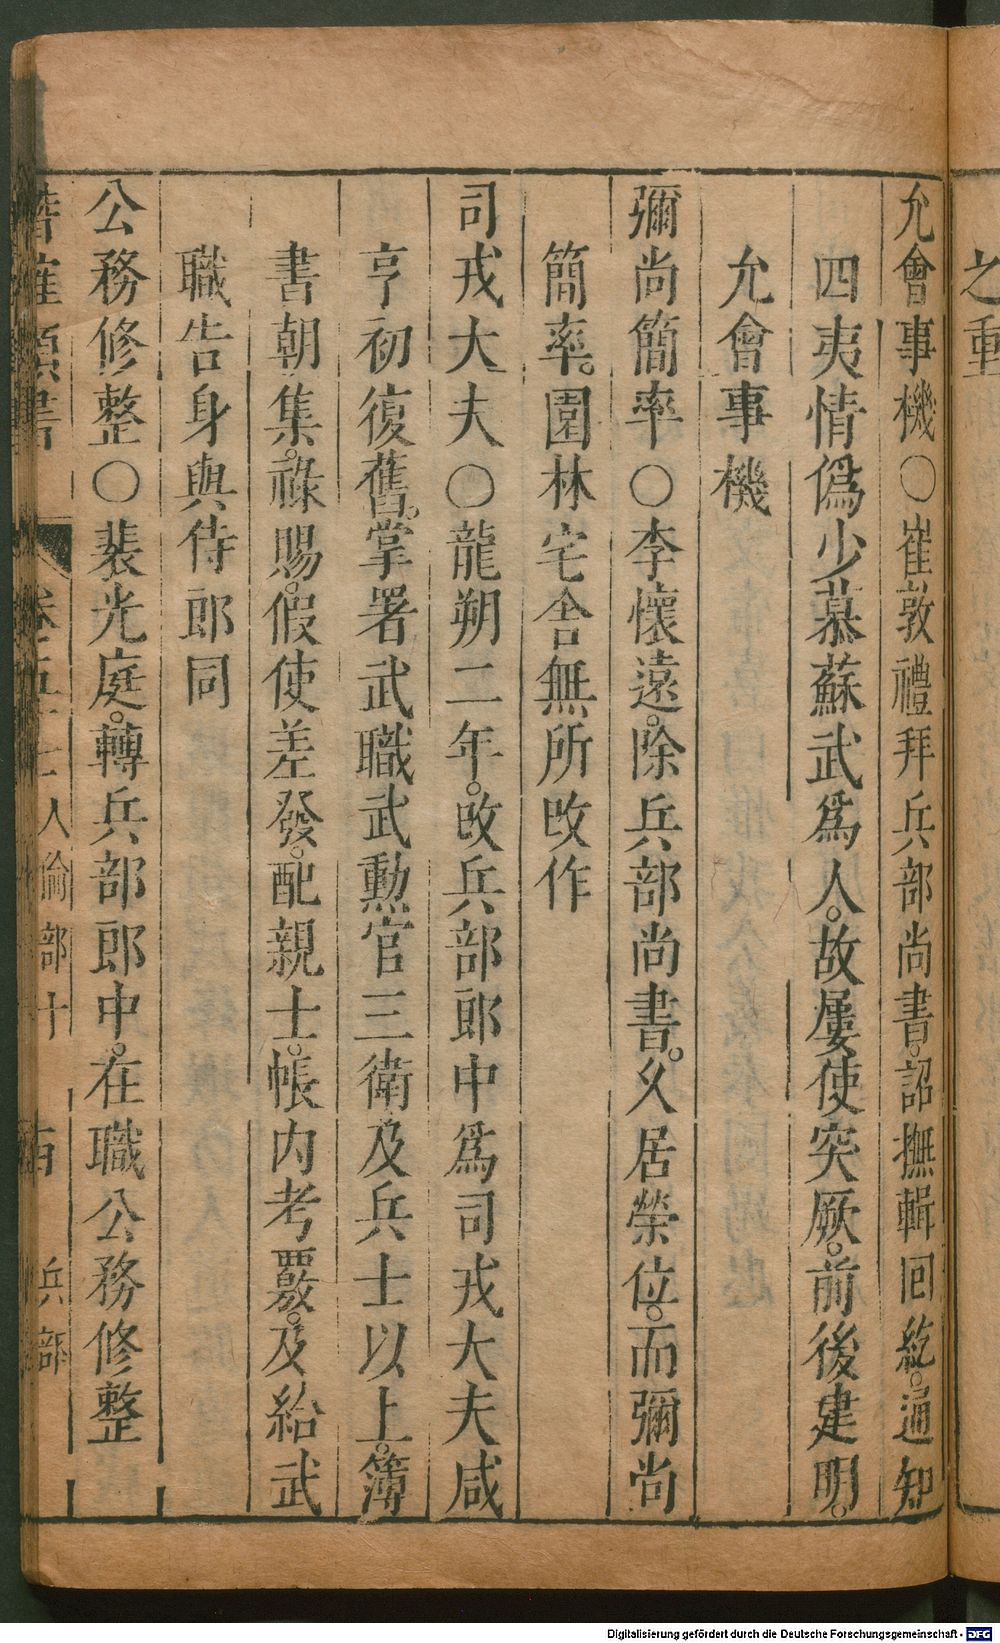 之重
允會事機○崔敦禮拜兵部尚書。詔撫輯囘紇。通知
四夷情偽少慕蘇武爲人。故屢使突厥。前後建明。
允會事機
彌尚簡率○李懷遠。除兵部尚書。乆居榮位。而彌尚
簡率。園林宅舍無所改作
司戎大夫○龍朔二年。改兵部郎中爲司戎大夫咸
亨初復舊。掌署武職武勲官三衛及兵士以上。簿
書朝集。祿賜。假使差發。配親士。帳内考覈。及給武
職告身與侍郎同
公務修整○裴光庭。轉兵部郎中。在職公務修整
卷五十七人倫部十 兵部
Digitalisierung gefördert durch die Deutsche Forschungsgemeinschaft - DFG